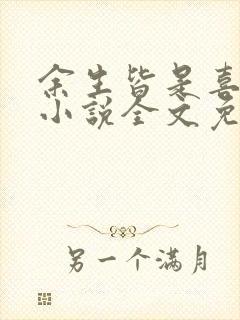 余生皆是喜
小说全文免
另一个满月